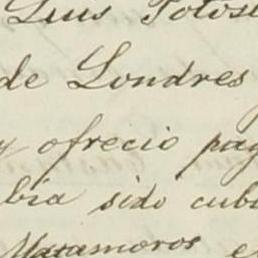 Luis Potosi
de Londres
y ofrecio pag
bia sido cub
Matamoros e